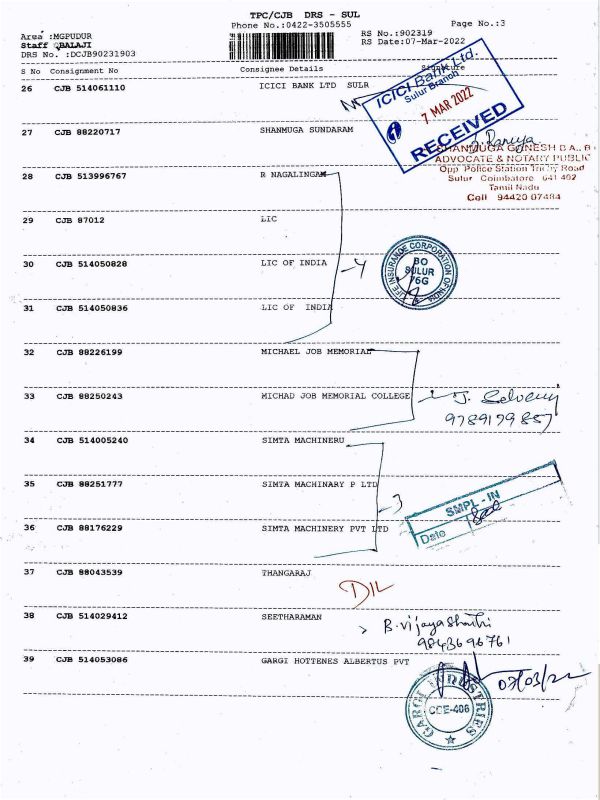 TPC/CJB DRS - SUL
Phone No.:0422-3505555
Page No.:3
Area :MGPUDUR
RS No.:902319
Staff :BALAJI
RS Date:07-Mar-2022
DRS No. :DCJB90231903
S No Consignment No Consignee Details Signature
26 CJB 514061110 ICICI BANK LTD SULR
ICICI Bank Ltd.
Sulur Branch
7 MAR 2022
RECEIVED
27 CJB 88220717 SHANMUGA SUNDARAM
ADVOCATE & NOTARY PUBLIC
Opp Police Station Trichy Road
Sulur Coimbatore 641 402
Tamil Nadu
Cell 94420 87484
28 CJB 513996767 R NAGALINGAM
29 CJB 87012 LIC
30 CJB 514050828 LIC OF INDIA
4
LIFE INSURANCE CORPORATION OF INDIA
BO
SULUR
76G
31 CJB 514050836 LIC OF INDIA
32 CJB 88226199 MICHAEL JOB MEMORIAL
33 CJB 88250243 MICHAD JOB MEMORIAL COLLEGE
9789179857
34 CJB 514005240 SIMTA MACHINERU
35 CJB 88251777 SIMTA MACHINARY P LTD
3
SMPL - IN
Date
36 CJB 88176229 SIMTA MACHINERY PVT LTD
37 CJB 88043539 THANGARAJ
D/L
38 CJB 514029412 SEETHARAMAN
B. vijayashanthi
9843696761
39 CJB 514053086 GARGI HOTTENES ALBERTUS PVT
07/03/22
GARGI INDUSTRIES
CBE-406